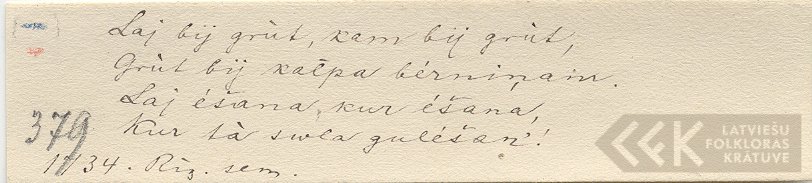 Laj bij grùt, kam bij grùt,
Grùt bij kalpa bérniņam.
Laj éšana, kur éšana,
Kur tà swla guléšan'!
379
1734. Rīg. sem.
LATVIEŠU
FOLKLORAS
KRĀTUVE